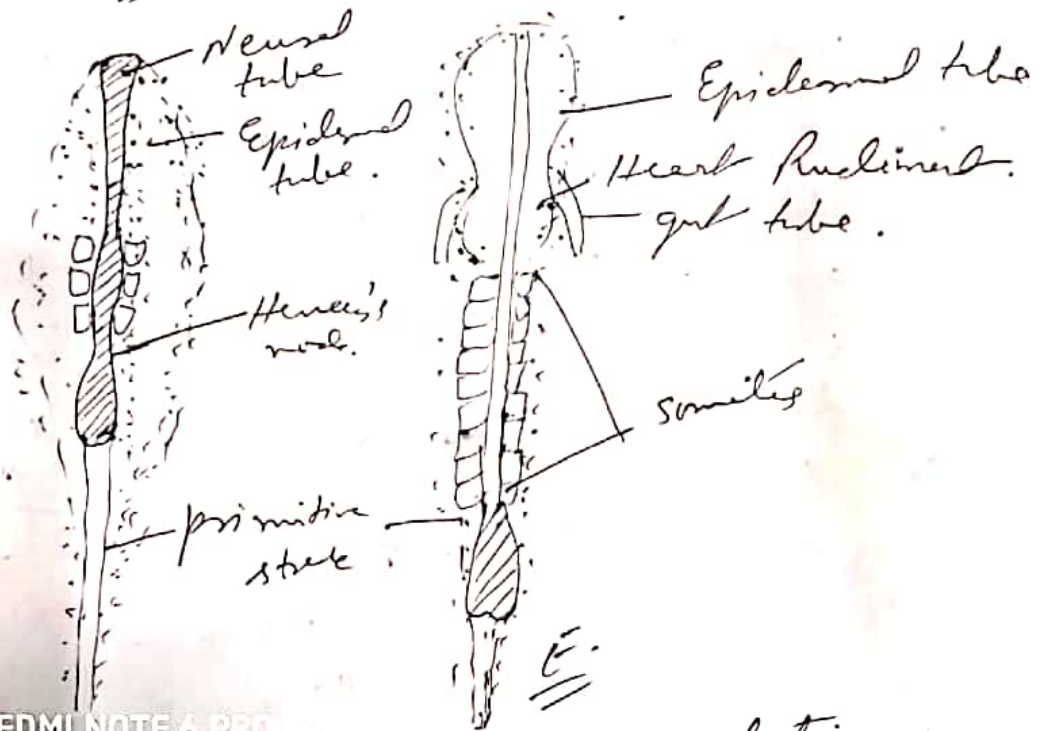 Neural
tube
Epidermal
tube.
Hensen's
node.
primitive
streak.
Epidermal tube
Heart Rudiment.
gut tube.
somites
E.
REDMI NOTE 6 PRO